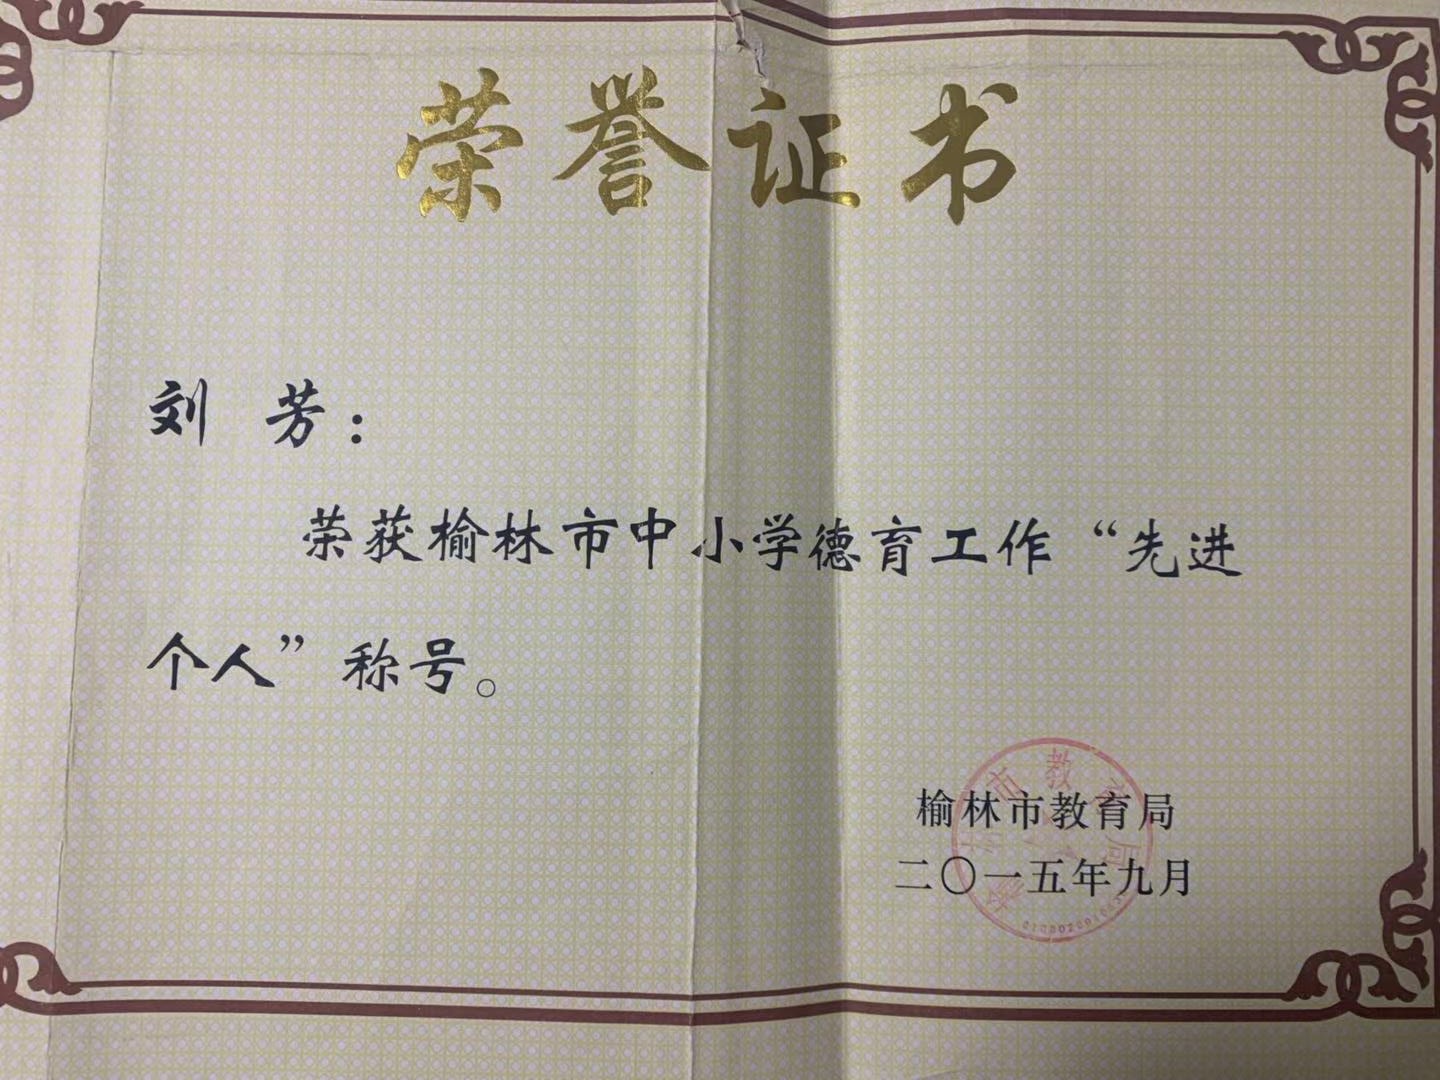 荣誉证书
刘 芳：
荣获榆林市中小学德育工作“先进
个人”称号。
榆林市教育局
二〇一五年九月
市教育局